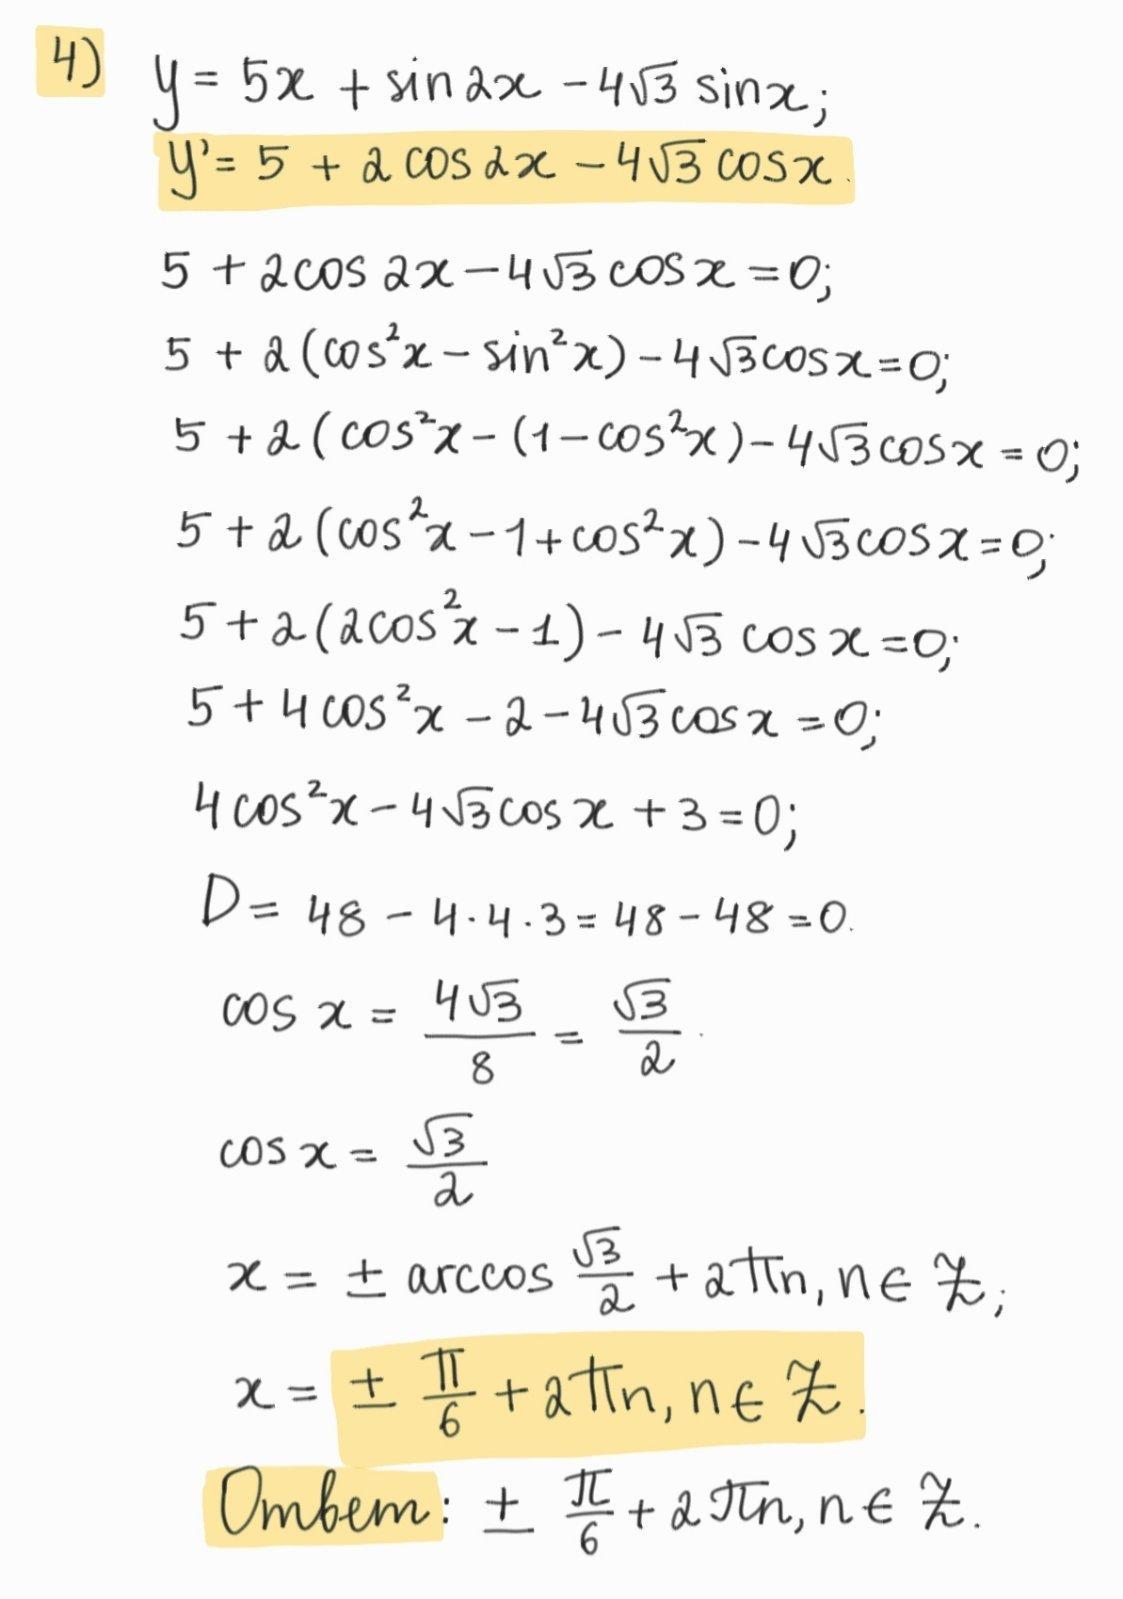 4) y = 5x + sin2x - 4√3 sinx;
y' = 5 + 2 cos 2x - 4√3 cosx.
5 + 2cos 2x - 4√3 cosx = 0;
5 + 2(cos²x - sin²x) - 4√3cosx = 0;
5 + 2(cos²x - (1 - cos²x) - 4√3cosx = 0;
5 + 2(cos²x - 1 + cos²x) - 4√3cosx = 0;
5 + 2(2cos²x - 1) - 4√3 cosx = 0;
5 + 4cos²x - 2 - 4√3cosx = 0;
4cos²x - 4√3cosx + 3 = 0;
D = 48 - 4·4·3 = 48 - 48 = 0.
cos x = 4√3/8 = √3/2.
cos x = √3/2
x = ± arccos √3/2 + 2πn, n ∈ ℤ;
x = ± π/6 + 2πn, n ∈ ℤ.
Ответ: ± π/6 + 2πn, n ∈ ℤ.